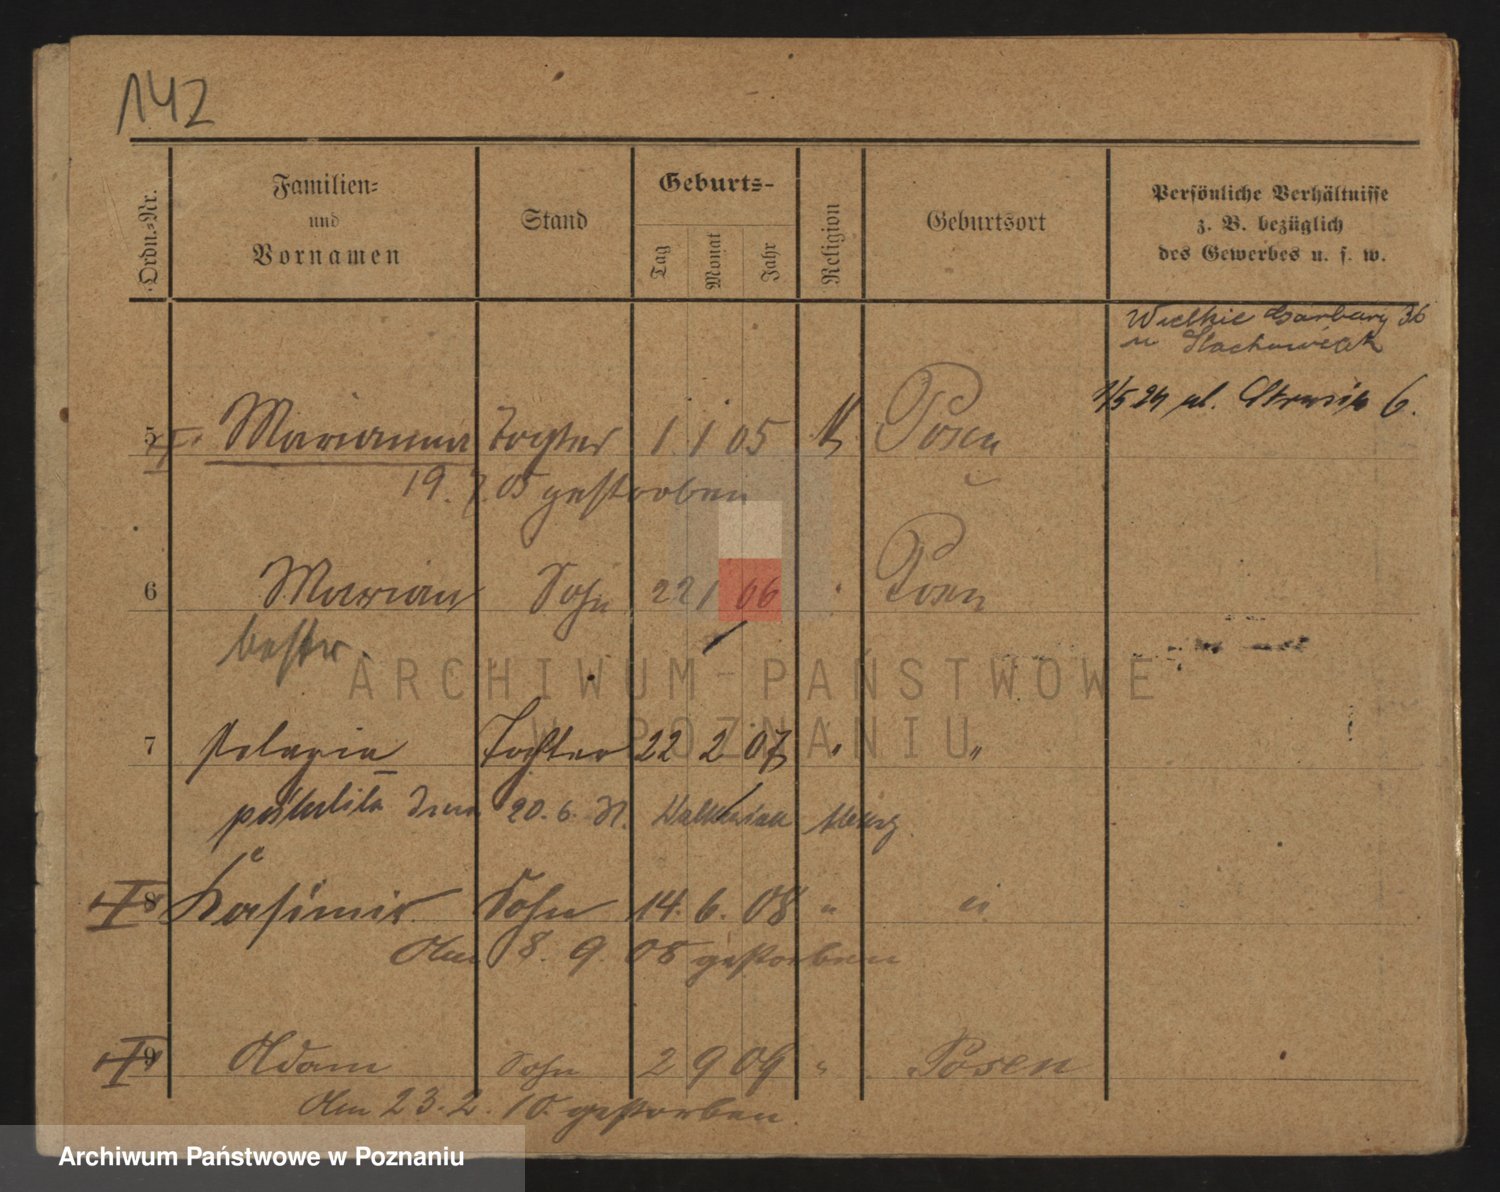 142
Ordn.-Nr.
Familien-
und
Vornamen
Stand
Geburts-
Tag
Monat
Jahr
Religion
Geburtsort
Persönliche Verhältnisse
z. B. bezüglich
des Gewerbes u. s. w.
Wielkie Garbary 36
u Stachowiak
1/5 24 ul. 6.
5 Marianna Tochter 1. 1 05 Posen
19. 7. 05 gestorben
6 Marian Sohn 22 1 06 Posen
bestr.
7 Pelagia Tochter 22 2 07 " "
20. 6. 31.
8 Kasimir Sohn 14. 6. 08 " "
Am 8. 9. 08 gestorben
9 Adam Sohn 2 9 09 " Posen
Am 23. 2. 10. gestorben.
ARCHIWUM PAŃSTWOWE
W POZNANIU
Archiwum Państwowe w Poznaniu